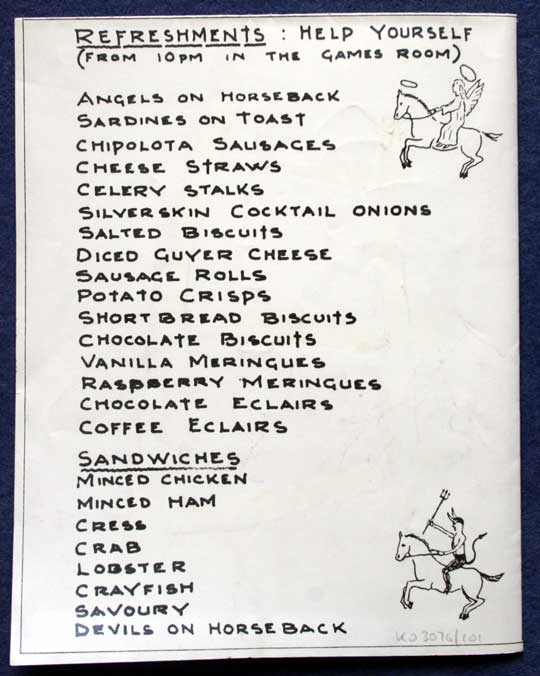 REFRESHMENTS : HELP YOURSELF
(FROM 10PM IN THE GAMES ROOM)
ANGELS ON HORSEBACK
SARDINES ON TOAST
CHIPOLOTA SAUSAGES
CHEESE STRAWS
CELERY STALKS
SILVERSKIN COCKTAIL ONIONS
SALTED BISCUITS
DICED GUYER CHEESE
SAUSAGE ROLLS
POTATO CRISPS
SHORT BREAD BISCUITS
CHOCOLATE BISCUITS
VANILLA MERINGUES
RASPBERRY MERINGUES
CHOCOLATE ECLAIRS
COFFEE ECLAIRS
SANDWICHES
MINCED CHICKEN
MINCED HAM
CRESS
CRAB
LOBSTER
CRAYFISH
SAVOURY
DEVILS ON HORSEBACK
KO 3076/101